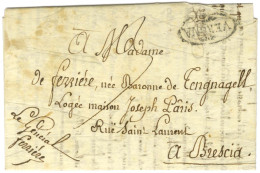 A Madame
de Ferrière, née Baronne de Tengnagell
Logée maison Joseph Pâris
Ruë Saint Laurent
A Brescia.
Le Général
Ferrière